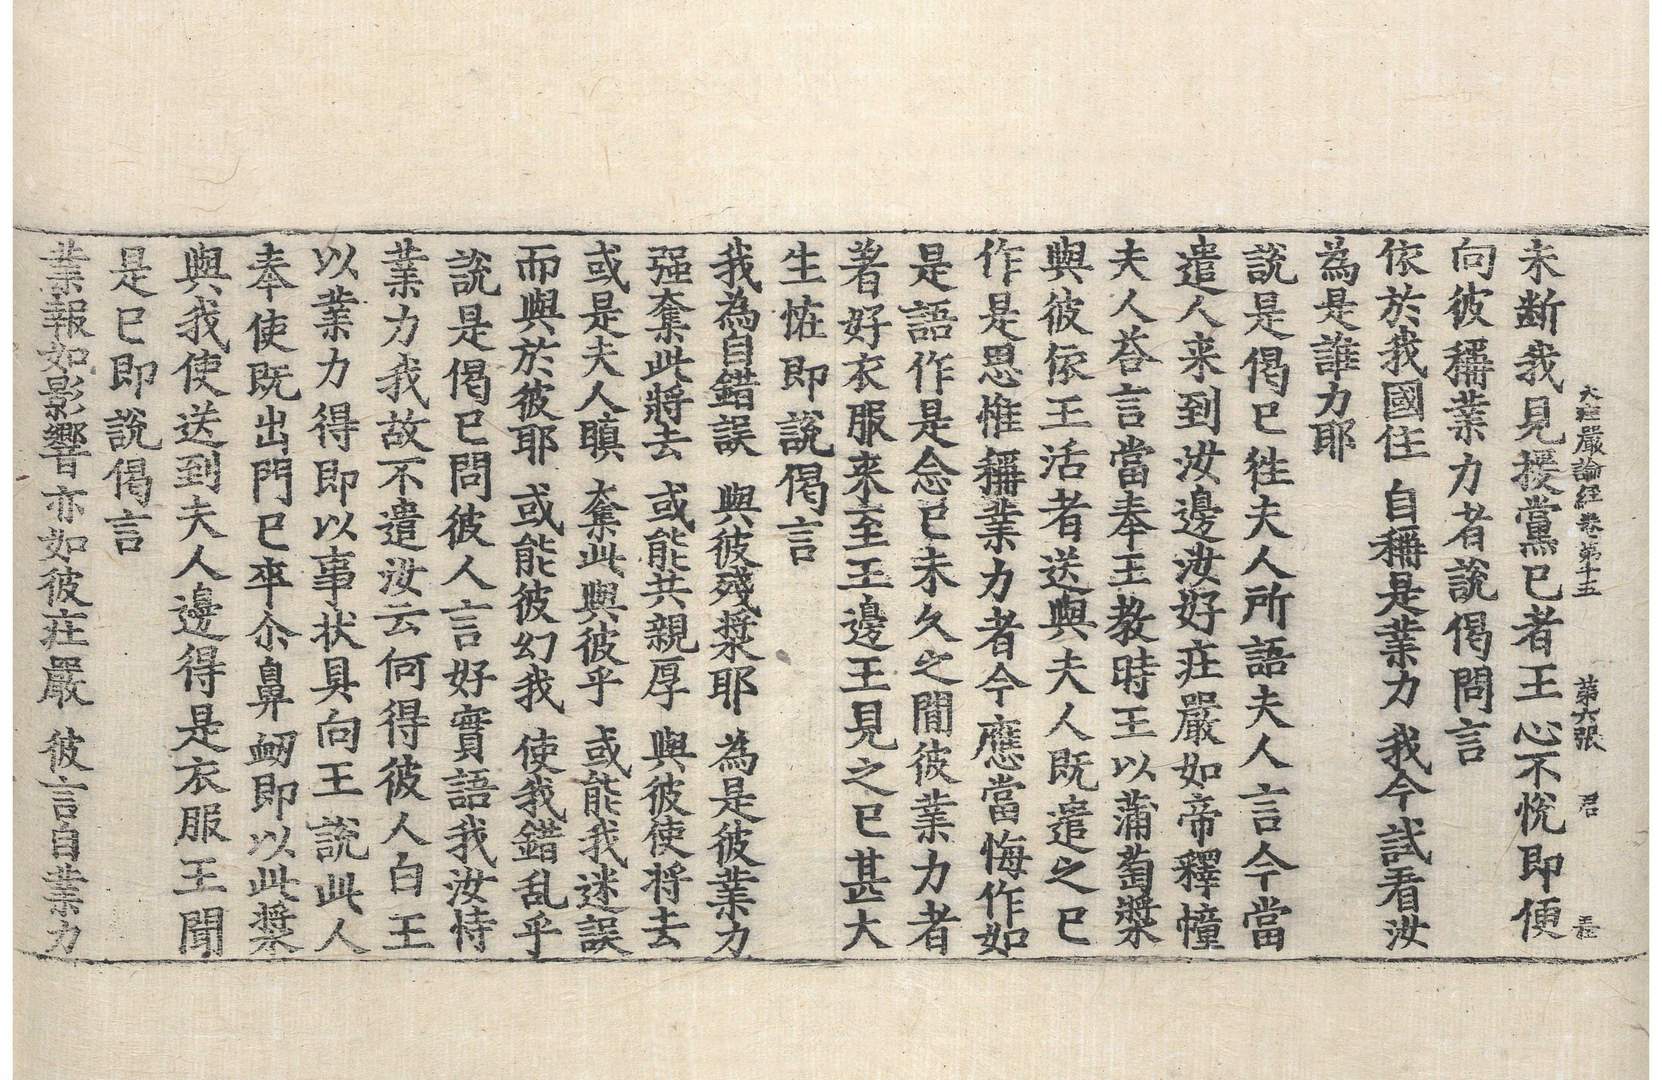 大莊嚴論經卷第十五　第六張　君
未断我見援黨已者王心不恱即便
向彼稱業力者說偈問言
依於我國住　自稱是業力　我今試看汝
為是誰力耶
說是偈已徃夫人所語夫人言今當
遣人来到汝邊汝好疘嚴如帝釋幢
夫人荅言當奉王教時王以蒲萄漿
與彼依王活者送與夫人既遣之已
作是思惟稱業力者今應當悔作如
是語作是念已未久之間彼業力者
著好衣服来至王邊王見之已甚大
生恠即說偈言
我為自錯誤　與彼殘漿耶　為是彼業力
强奪此將去　或能共親厚　與彼使將去
或是夫人瞋　奪此與彼乎　或能我迷誤
而與於彼耶　或能彼幻我　使我錯乱乎
說是偈已問彼人言好實語我汝恃
業力我故不遣汝云何得彼人白王
以業力得即以事状具向王說此人
奉使既出門已卒尒鼻衂即以此漿
與我使送到夫人邊得是衣服王聞
是已即說偈言
業報如影響　亦如彼疘嚴　彼言自業力